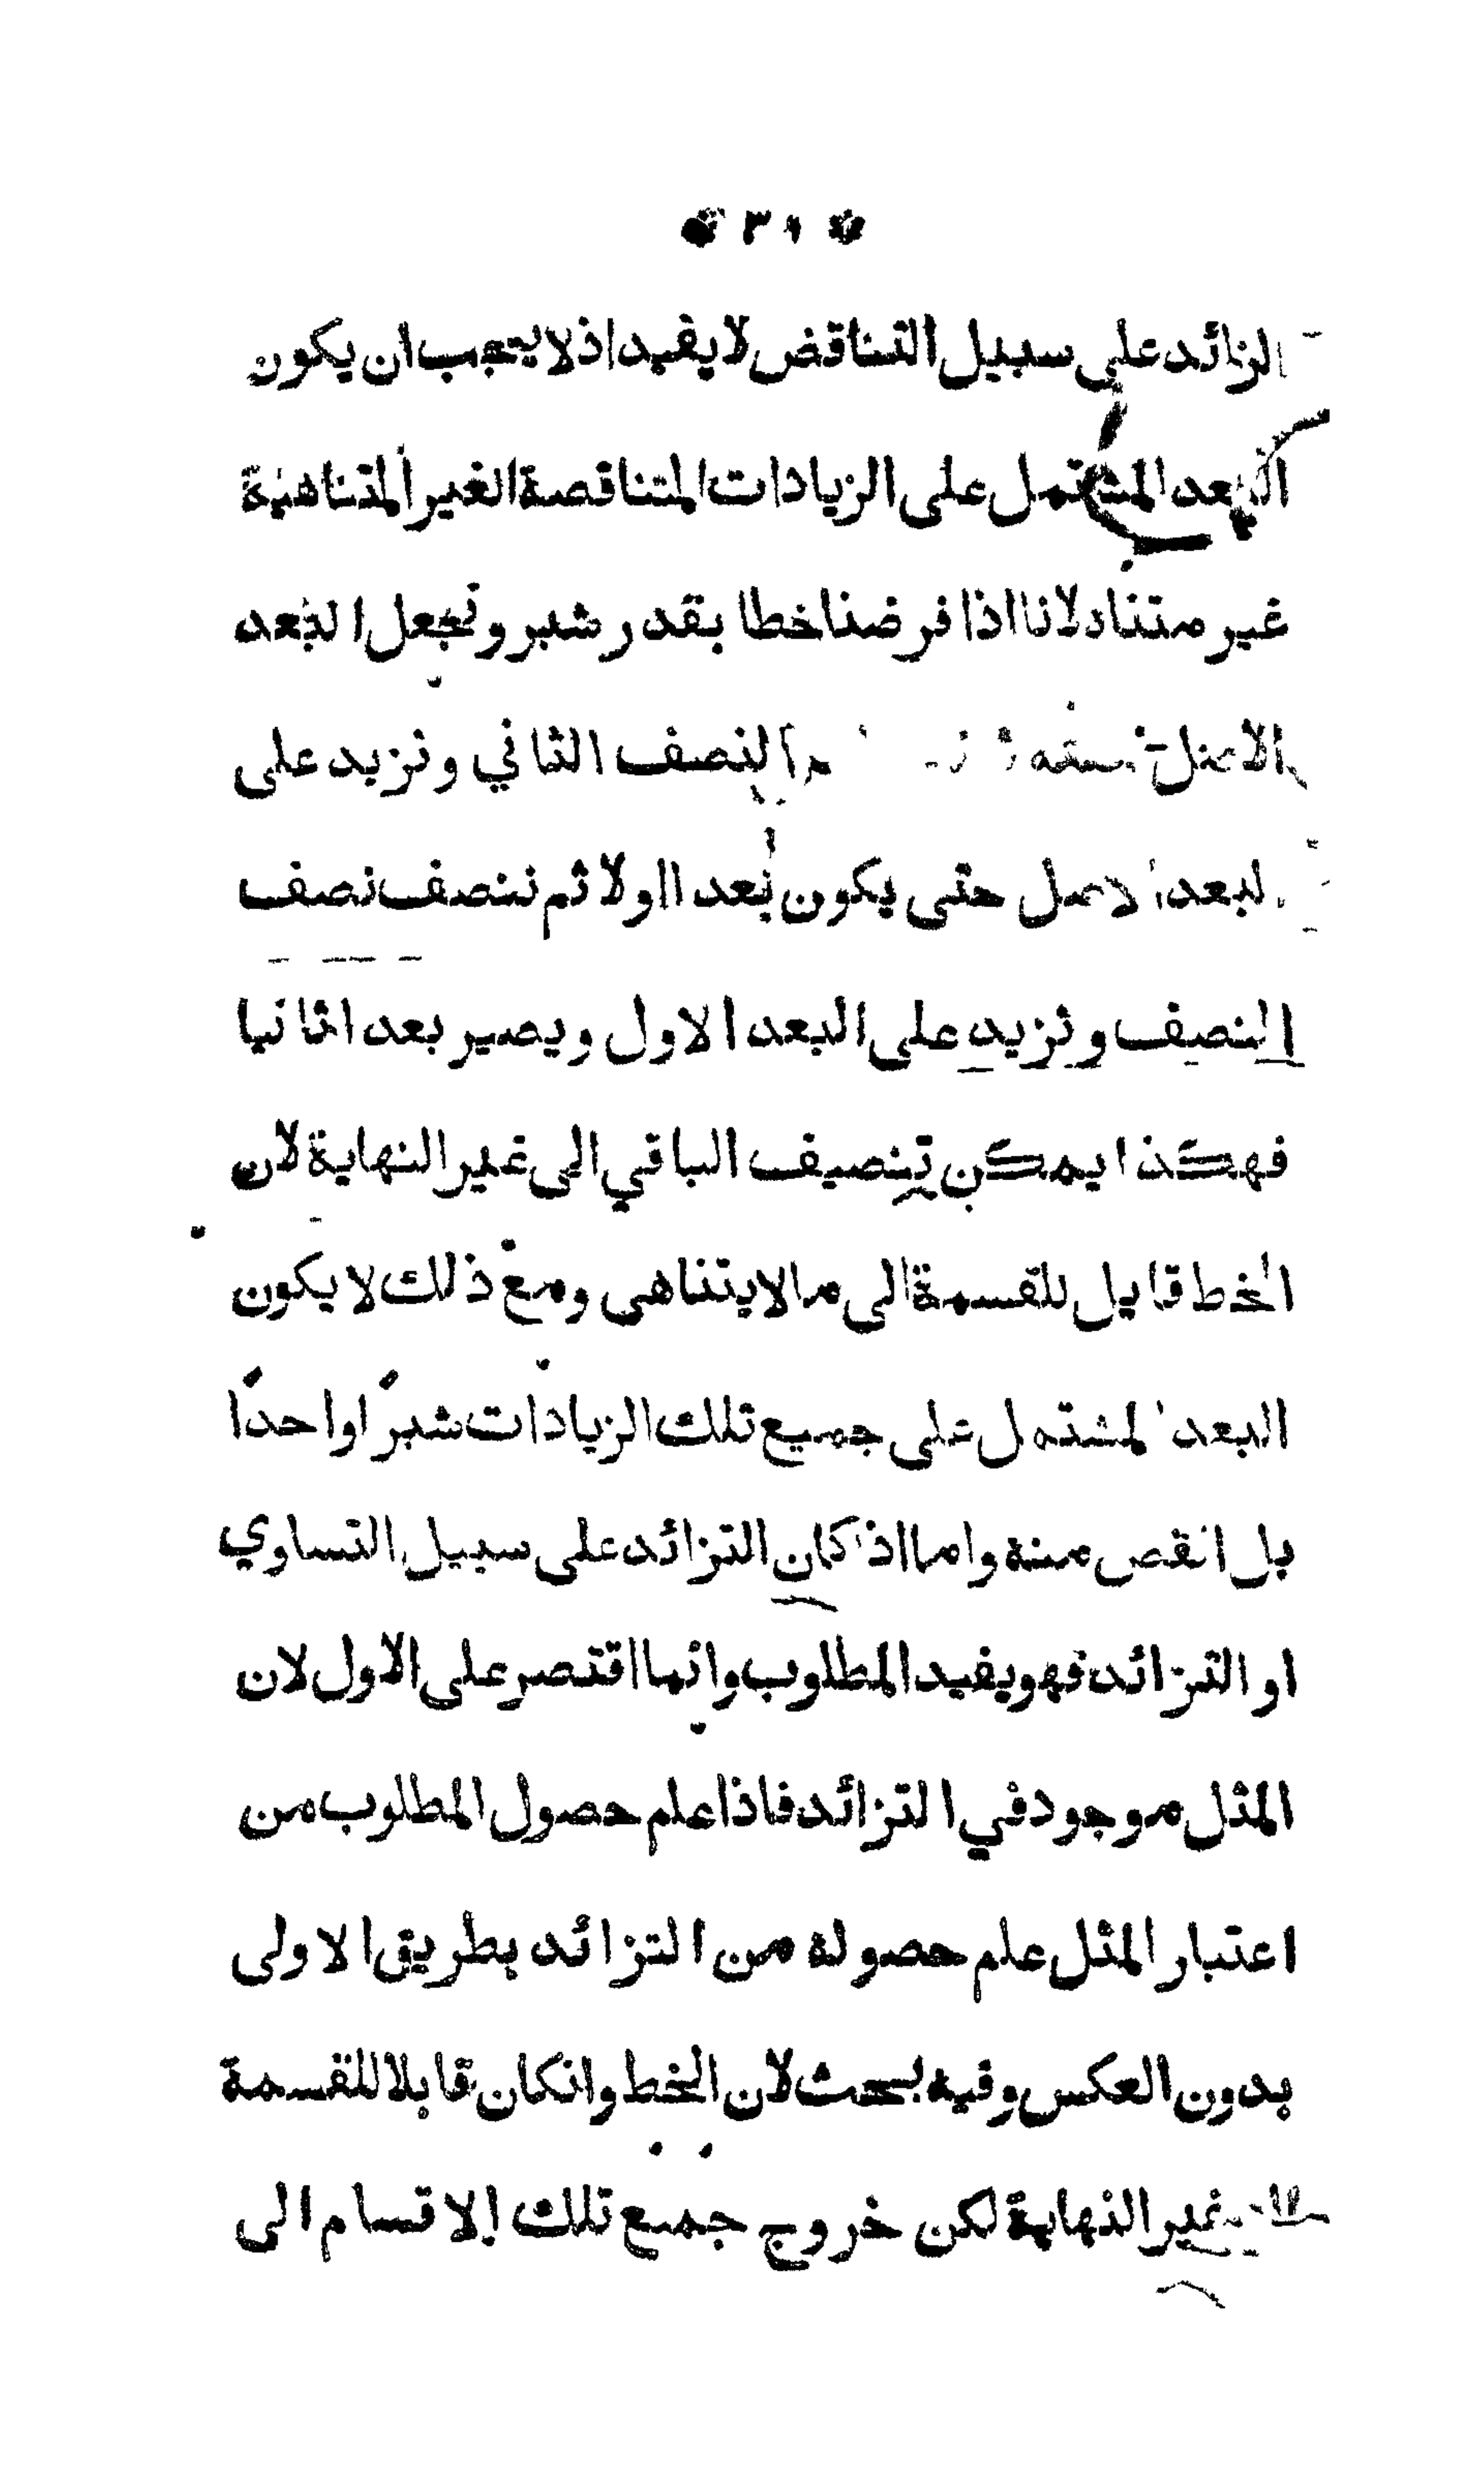 ٣١
الزائد على سبيل التناقض لا يفيد اذ لا يجب ان يكون
البعد المشتمل على الزيادات المتناقصة الغير المتناهية
غير متناه لانا اذا فرضنا خطا بقدر شبر ونجعل البعد
الاصل نصفه النصف الثاني ونزيد على
البعد الاصل حتى يكون بعدا اولا ثم ننصف نصف
النصف ونزيد على البعد الاول ويصير بعدا ثانيا
فهكذا يمكن تنصيف الباقي الى غير النهاية لان
الخط قابل للقسمة الى ما لا يتناهى ومع ذلك لا يكون
البعد المشتمل على جميع تلك الزيادات شبرًا واحدًا
بل انقص منه واما اذا كان التزائد على سبيل التساوي
او التزائد فهو يفيد المطلوب وانما اقتصر على الاول لان
المثل موجود في التزائد فاذا علم حصول المطلوب من
اعتبار المثل علم حصوله من التزائد بطريق الاولى
بدون العكس وفيه بحث لان الخط وانكان قابلا للقسمة
غير النهاية لكن خروج جميع تلك الاقسام الى